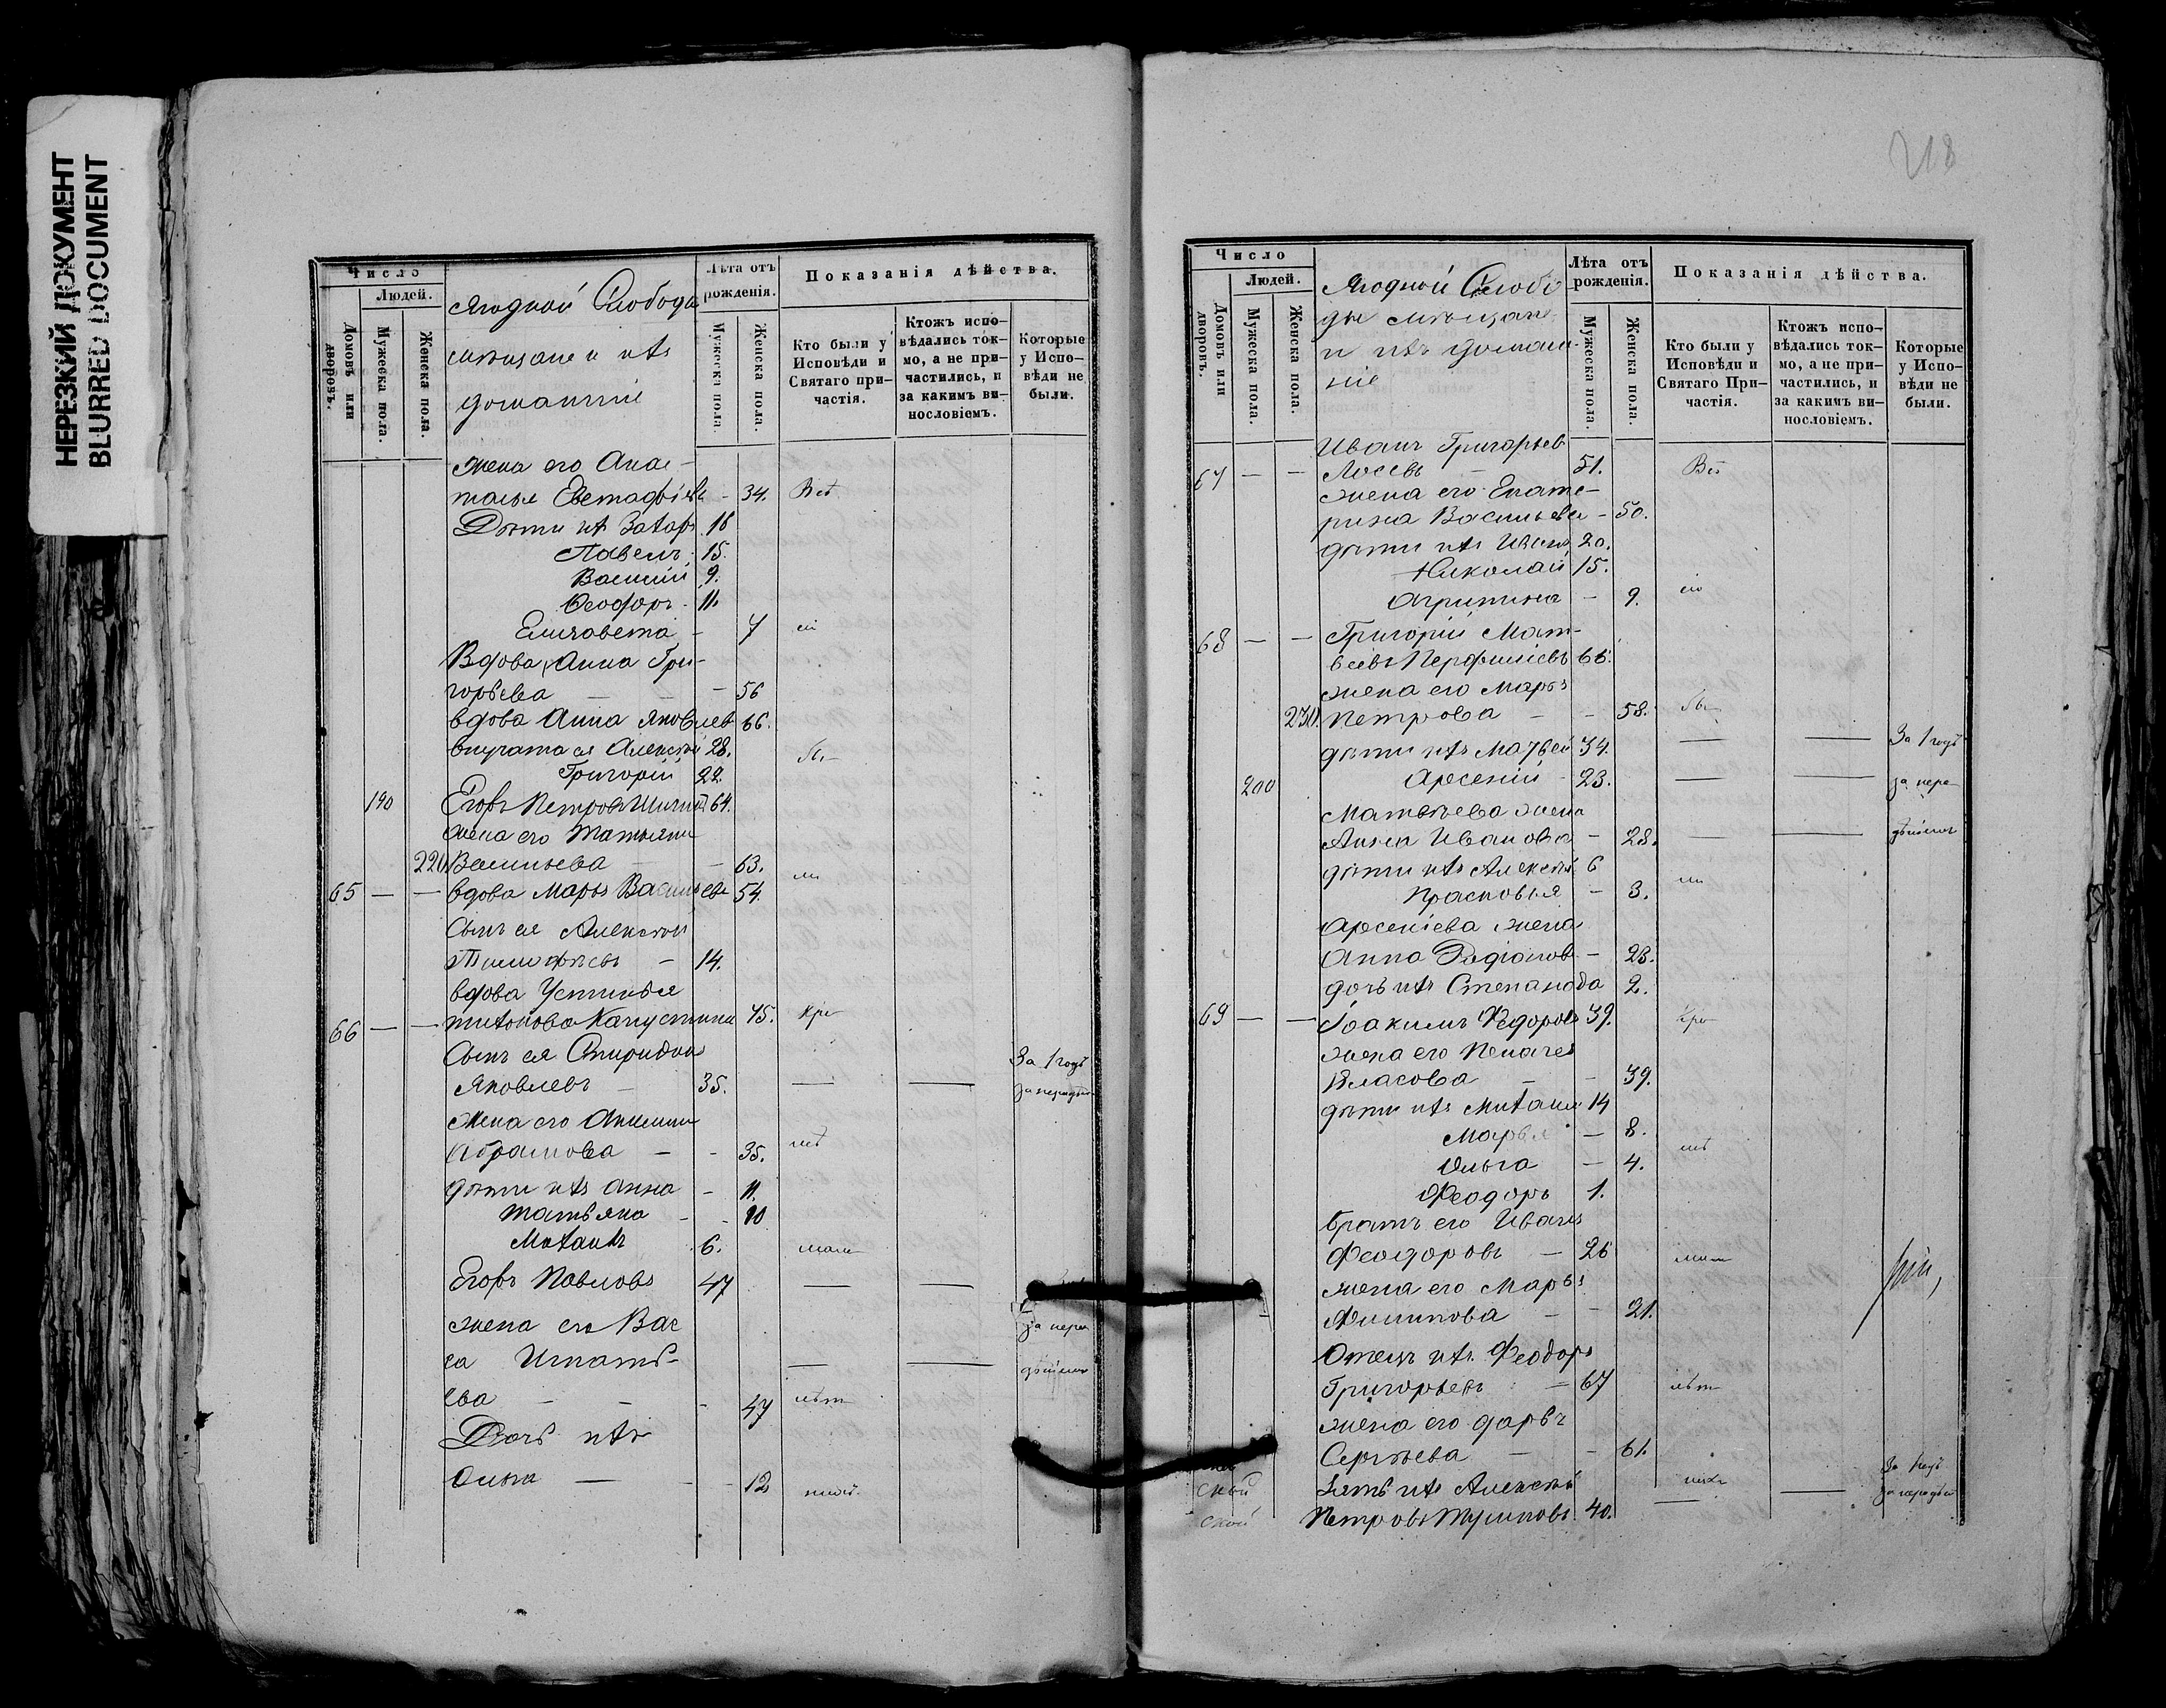 НЕРЕЗКИЙ ДОКУМЕНТ
BLURRED DOCUMENT
Число
Людей.
Домовъ или дворовъ.
Мужеска пола.
Женска пола.
Ягодной Слобода
мѣщане и ихъ
домашніе
Лѣта отъ рожденія.
Мужеска пола.
Женска пола.
Показанія дѣйства.
Кто были у Исповѣди и Святаго при-
частія.
Ктожъ испо-
вѣдались ток-
мо, а не при-
частились, и
за какимъ ви-
нословіемъ.
Которые
у Испо-
вѣди не
были.
жена его Анас-
тасья - 34. Всѣ
Дѣти ихъ Захаръ 18
Павелъ 15.
Василій 9.
Ѳеодоръ 11.
Елизавета - 7
Вдова Анна Гри-
горьева - 56
вдова Анна Яковлев 66.
внучата ея Алексѣй 28.
Григорій 22.
190 Егоръ Петровъ 64.
жена его Татьяна
220 Васильева - 63.
65 — — вдова Марья Васильева 54.
Сынъ ея Алексѣй
Тимофѣевъ - 14.
вдова Устинья
66 — — Капустина 75.
Сынъ ея Спиридонъ За 1 годъ
Яковлевъ - 35. — —
жена его
Абрамова - - 35.
дѣти ихъ Анна - 11.
Татьяна - - 10
Михаилъ 6.
Егоръ Павловъ 47 — —
жена его Вас
са Игнать- — —
ева - - - 47
Дочь ихъ
Ольга — - 12
218
Число
Людей.
Домовъ или дворовъ.
Мужеска пола.
Женска пола.
Ягодной Слобо
ды мѣщане
и ихъ домаш-
ніе
Лѣта отъ рожденія.
Мужеска пола.
Женска пола.
Показанія дѣйства.
Кто были у
Исповѣди и
Святаго При-
частія.
Ктожъ испо-
вѣдались ток-
мо, а не при-
частились, и
за какимъ ви-
нословіемъ.
Которые
у Испо-
вѣди не
были.
Иванъ Григорьев
67 — — Лосевъ - 51. Всѣ
жена его Екате-
рина Васильева - 50.
дѣти ихъ Иванъ 20.
Николай 15.
Агрипина - 9.
68 — — Григорій Мат-
вѣевъ Перфильевъ 66.
жена его Марья
230. Петрова - - 58.
дѣти ихъ Матвей 34. — — За 1 годъ
200 Арсеній - 23. — — за нера
Матвѣева жена
Анна Иванова - 28. — — дѣніемъ
дѣти ихъ Алексѣй 6
Прасковья - 3.
Арсеніева жена
Анна - 23.
дочь ихъ Степанида 2.
69 — — Іоакимъ Ѳедоровъ 39.
жена его Пелагея
Власова - - 39.
дѣти ихъ Михаилъ 14
Марья - 8.
Ольга - 4.
Феодоръ 1.
братъ его Иванъ
Феодоровъ - 26
жена его Марья
Филипова - - 21.
Отецъ ихъ Феодоръ
Григорьевъ - 67
жена его Дарья
Сергѣева - - 61.
ской зять ихъ Алексѣй За 1 годъ
ской Петровъ 40. — —